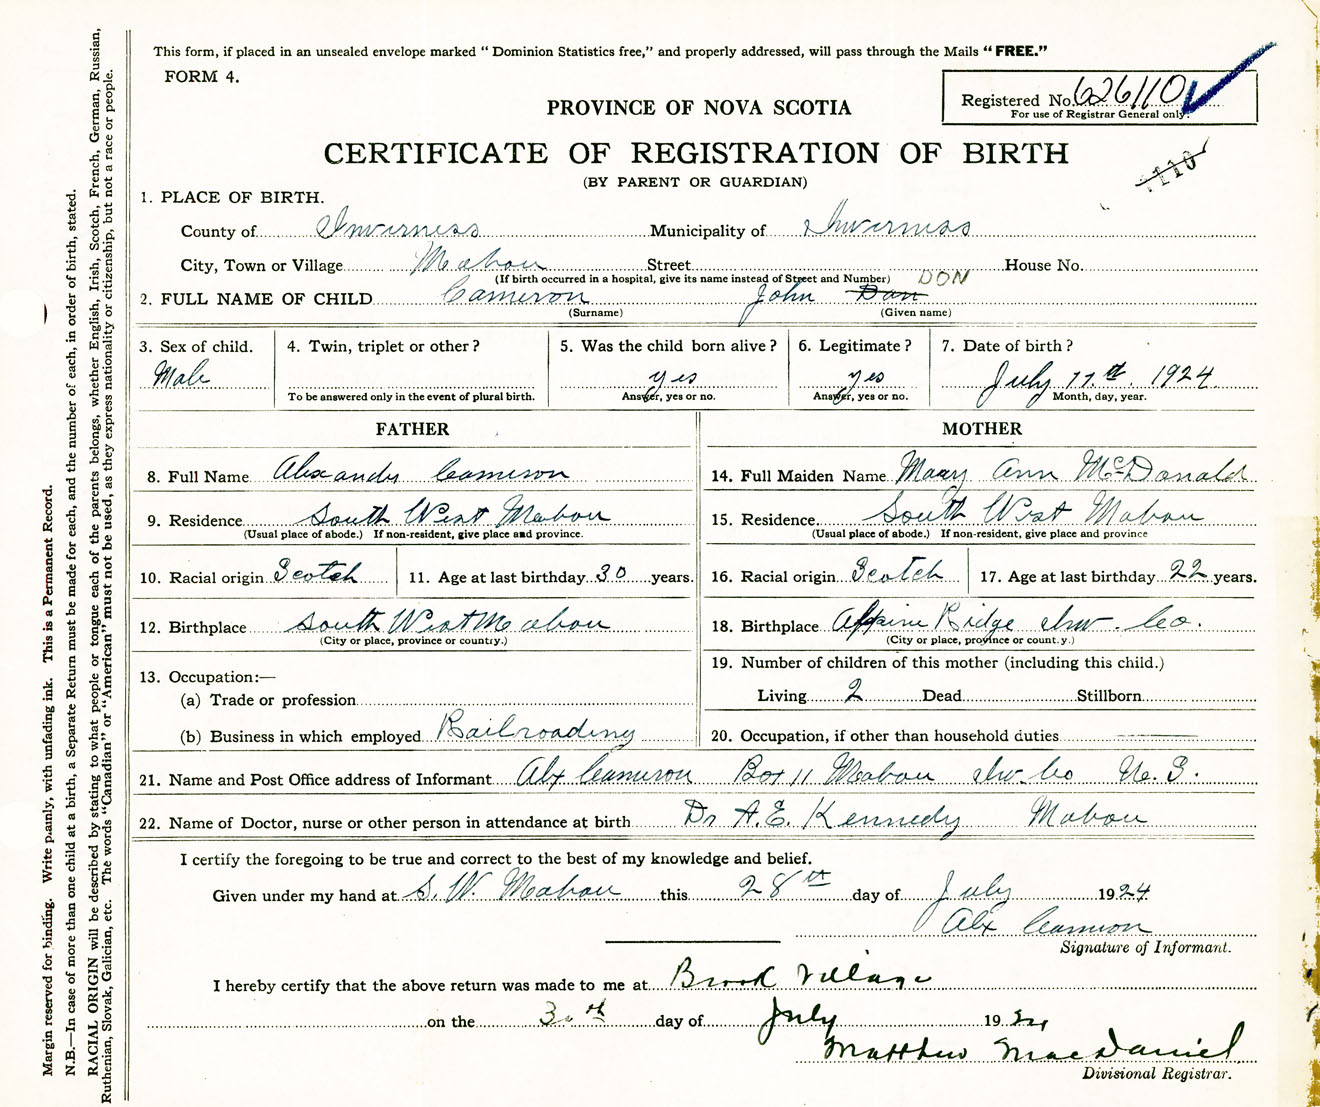 This form, if placed in an unsealed envelope marked “ Dominion Statistics free,” and properly addressed, will pass through the Mails “ FREE.”
FORM 4.
Registered No. 626110
For use of Registrar General only.
PROVINCE OF NOVA SCOTIA
CERTIFICATE OF REGISTRATION OF BIRTH
1110
(BY PARENT OR GUARDIAN)
1. PLACE OF BIRTH.
County of Inverness Municipality of Inverness
City, Town or Village Mabou Street House No.
(If birth occurred in a hospital, give its name instead of Street and Number) DON
2. FULL NAME OF CHILD Cameron John Dan
(Surname) (Given name)
3. Sex of child. 4. Twin, triplet or other ? 5. Was the child born alive ? 6. Legitimate ? 7. Date of birth ?
Male yes yes July 17th. 1924
To be answered only in the event of plural birth. Answer, yes or no. Answer, yes or no. Month, day, year.
FATHER MOTHER
8. Full Name Alexander Cameron 14. Full Maiden Name Mary Ann McDonald
9. Residence South West Mabou 15. Residence South West Mabou
(Usual place of abode.) If non-resident, give place and province. (Usual place of abode.) If non-resident, give place and province
10. Racial origin Scotch 11. Age at last birthday 30 years. 16. Racial origin Scotch 17. Age at last birthday 22 years.
12. Birthplace South West Mabou 18. Birthplace Alpine Ridge Inv. Co.
(City or place, province or country.) (City or place, province or count.y.)
19. Number of children of this mother (including this child.)
13. Occupation:—
(a) Trade or profession Living 2 Dead Stillborn
(b) Business in which employed Railroading 20. Occupation, if other than household duties
21. Name and Post Office address of Informant Alx Cameron Box 11 Mabou Inv Co N. S.
22. Name of Doctor, nurse or other person in attendance at birth Dr A.E. Kennedy Mabou
I certify the foregoing to be true and correct to the best of my knowledge and belief.
Given under my hand at S. W. Mabou this 28th day of July 1924
Alx Cameron
Signature of Informant.
I hereby certify that the above return was made to me at Brook Village
on the 30th day of July 1924
Matthew MacDaniel
Divisional Registrar.
Margin reserved for binding. Write p.ainly, with unfading ink. This is a Permanent Record.
N.B.—In case of more than one child at a birth, a Separate Return must be made for each, and the number of each, in order of birth, stated.
RACIAL ORIGIN will be described by stating to what people or tongue each of the parents belongs, whether English, Irish, Scotch, French, German, Russian,
Ruthenian, Slovak, Galician, etc. The words “Canadian” or “American” must not be used, as they express nationality or citizenship, but not a race or people.